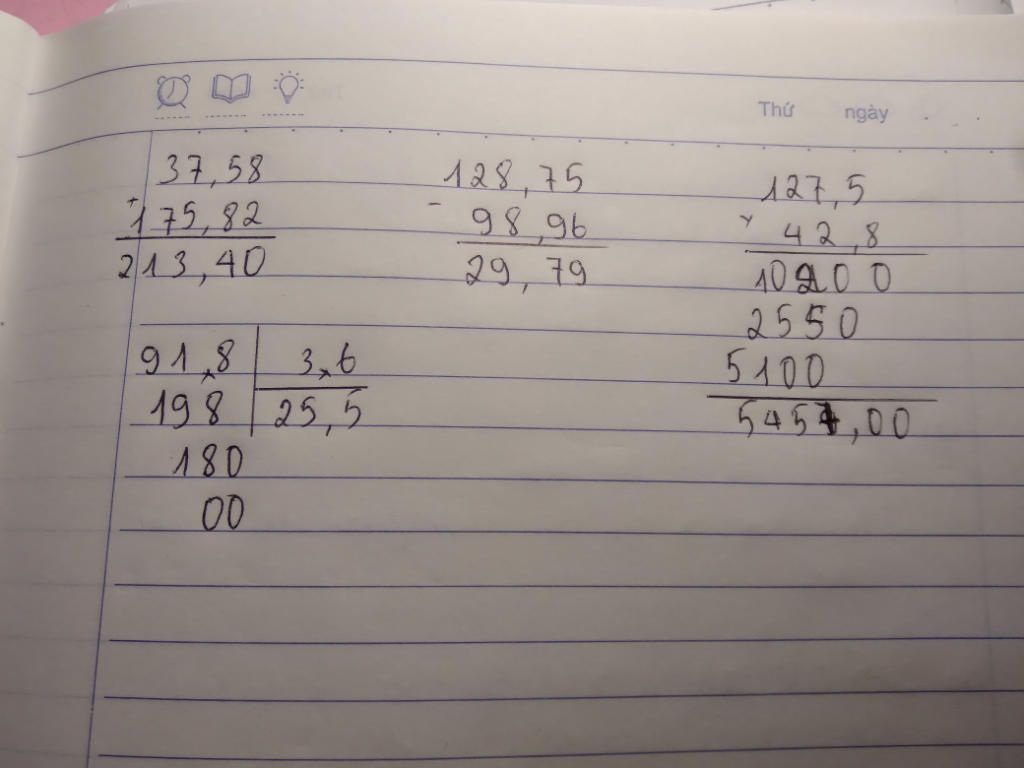 Thứ ngày
37,58
+
175,82
213,40
128,75
-
98,96
29,79
127,5
x
42,8
10200
2550
5100
5457,00
91,8 3,6
198 25,5
180
00